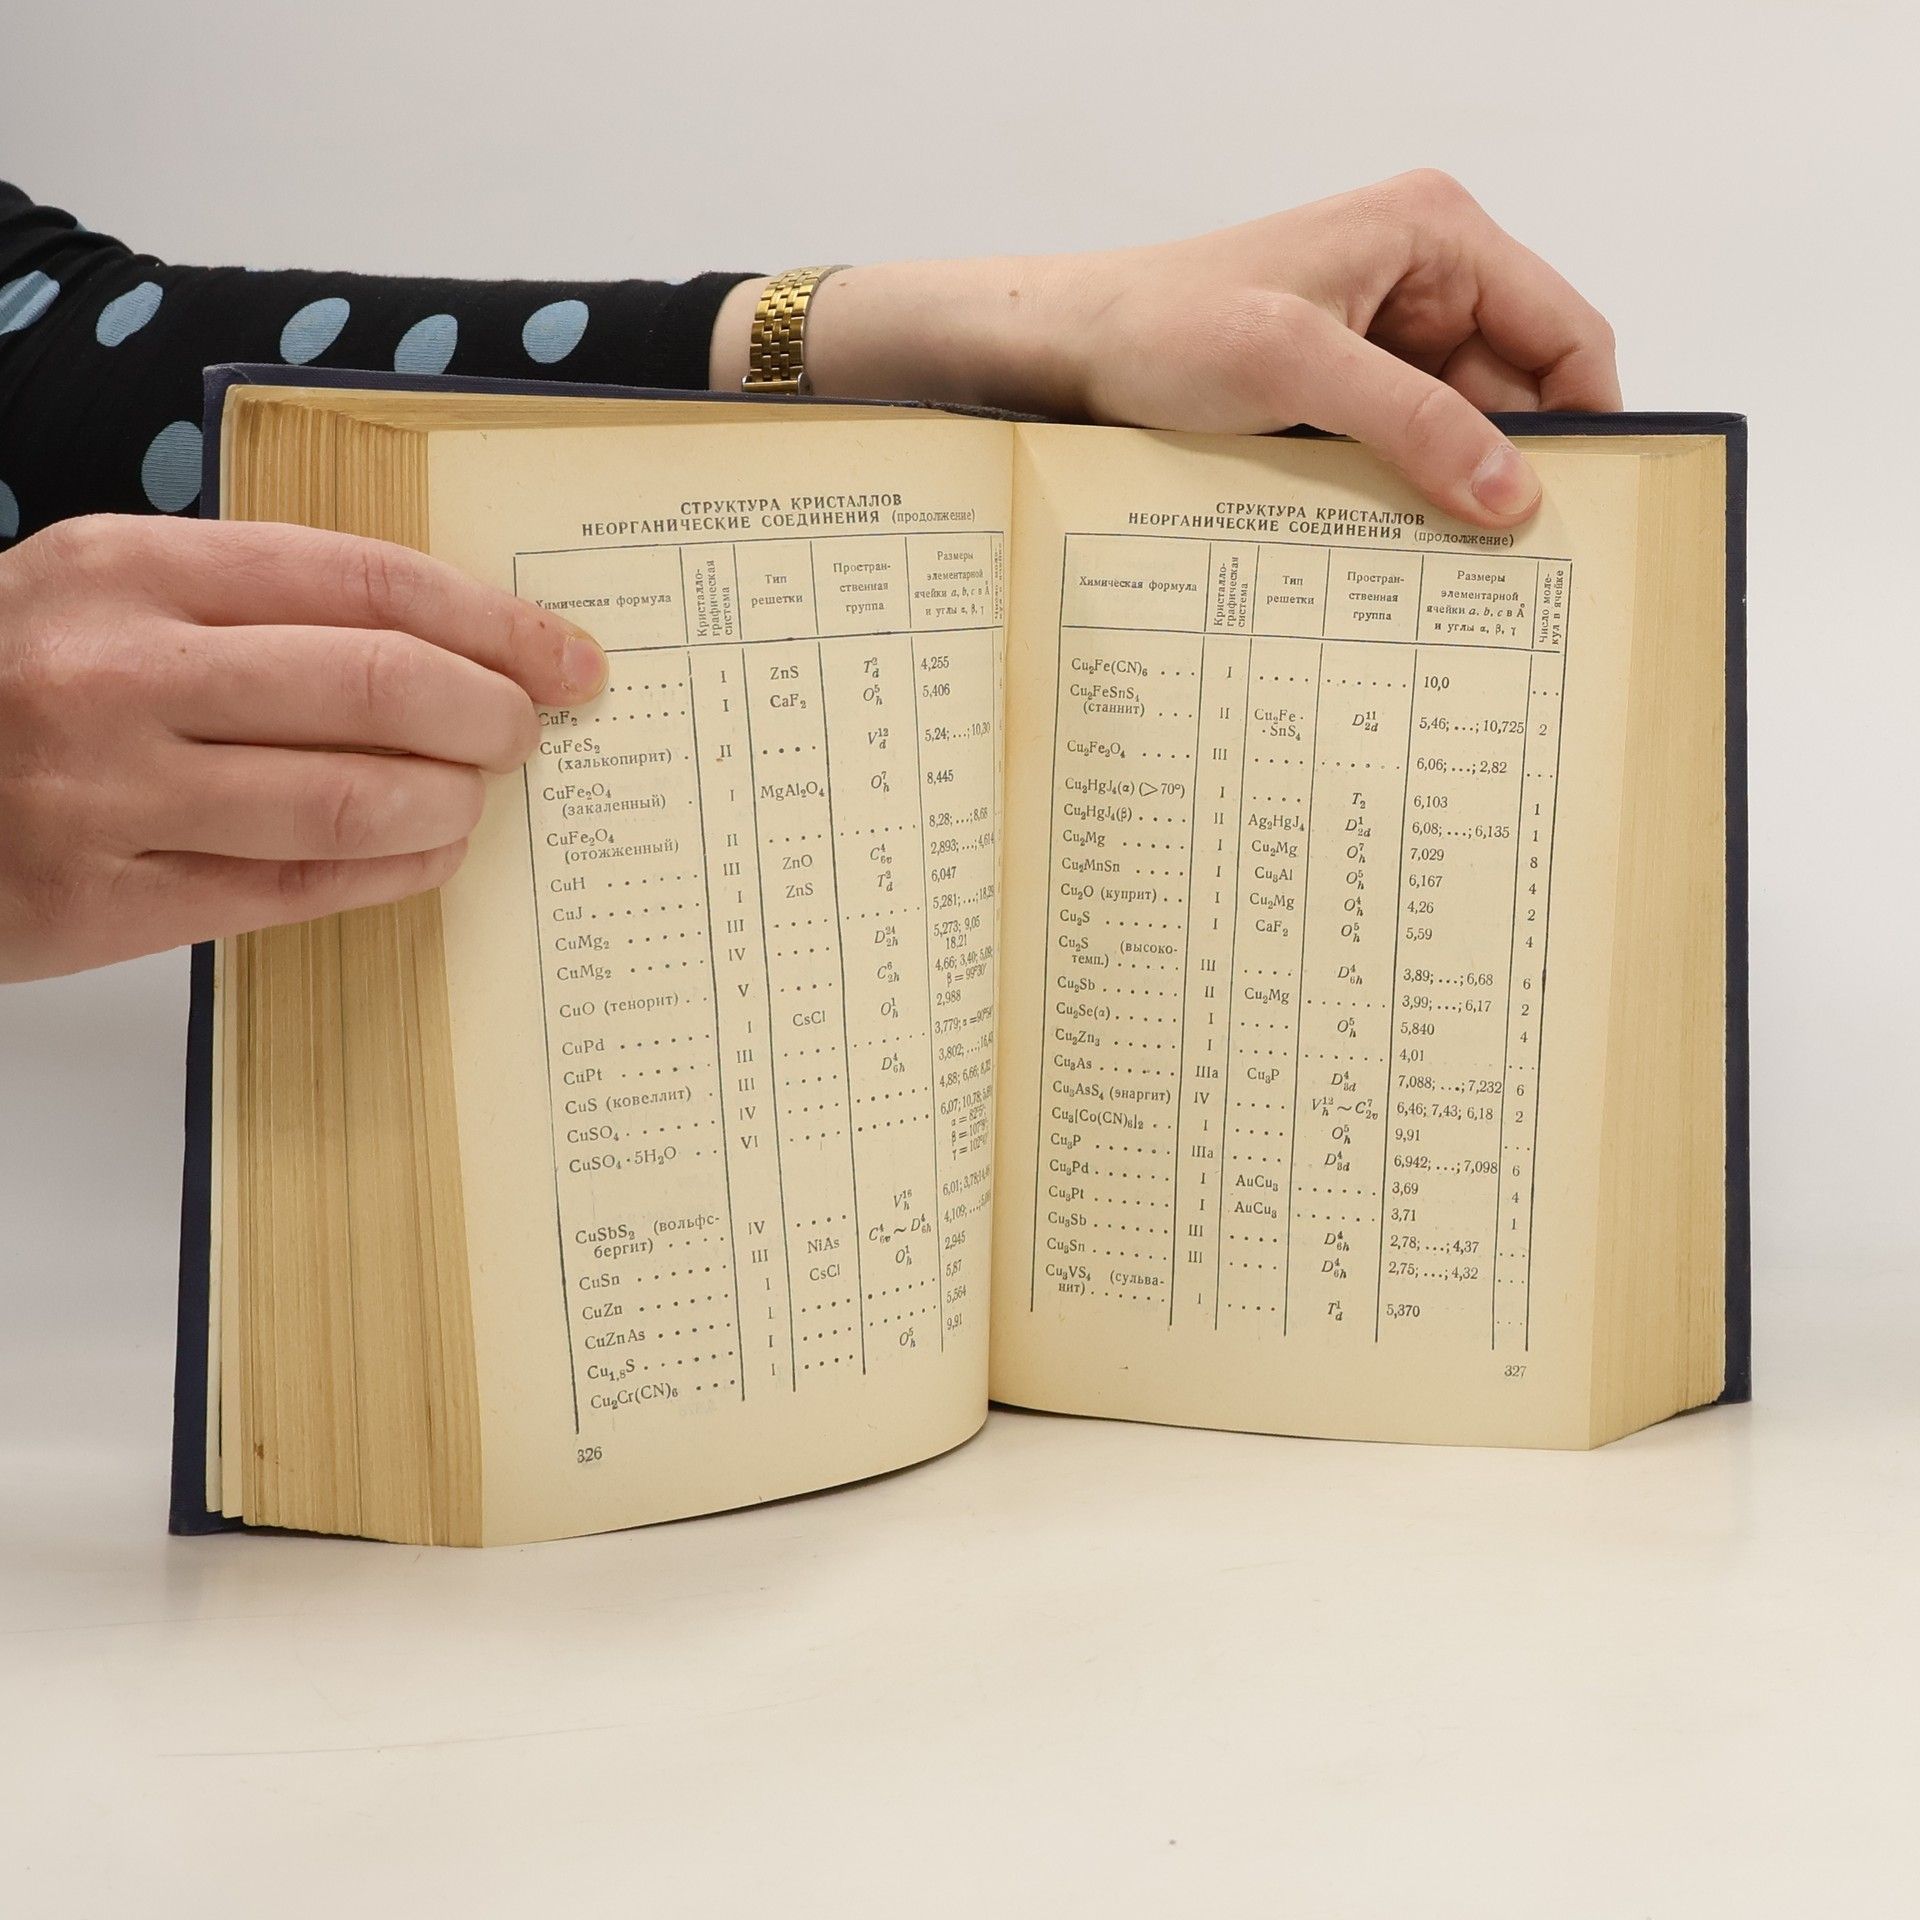 СТРУКТУРА КРИСТАЛЛОВ
НЕОРГАНИЧЕСКИЕ СОЕДИНЕНИЯ (продолжение)
Химическая формула | Кристалло-графическая система | Тип решетки | Простран-ственная группа | Размеры элементарной ячейки a, b, c в Å и углы α, β, γ
. . . . . I ZnS T²d 4,255
CuF₂ . . . . . . I CaF₂ O⁵h 5,406
CuFeS₂
(халькопирит) . II . . . . V¹²d 5,24; ...; 10,30
CuFe₂O₄
(закаленный) . I MgAl₂O₄ O⁷h 8,445
CuFe₂O₄
(отожженный) II . . . . . . . . . . 8,28; ...; 8,68
CuH . . . . . . III ZnO C⁴6v 2,893; ...; 4,614
CuJ . . . . . . . I ZnS T²d 6,047
CuMg₂ . . . . . III . . . . . . . . . . 5,281; ...; 18,29
CuMg₂ . . . . . IV . . . . D²⁴2h 5,273; 9,05
18,21
CuO (тенорит) . . V . . . . C⁶2h 4,66; 3,40; 5,09;
β = 99°30′
CuPd . . . . . . I CsCl O¹h 2,988
CuPt . . . . . . III . . . . . . . . . . 3,779; α = 90°54′
CuS (ковеллит) . III . . . . D⁴6h 3,802; ...; 16,43
CuSO₄ . . . . . . IV . . . . . . . . . . 4,88; 6,66; 8,32
CuSO₄ · 5H₂O . . VI . . . . . . . . . . 6,07; 10,78; 5,89
α = 82°5′;
β = 107°8′
γ = 102°41′
CuSbS₂ (вольфс-
бергит) . . . . IV . . . . V¹⁶h 6,01; 3,78; 14,46
CuSn . . . . . . III NiAs C⁴6v ~ D⁴6h 4,109; ...;
CuZn . . . . . . I CsCl O¹h 2,945
CuZnAs . . . . . I . . . . . . . . . . 5,87
Cu₁,₈S . . . . . . I . . . . . . . . . . 5,564
Cu₂Cr(CN)₆ . . . I . . . . O⁵h 9,91
326
СТРУКТУРА КРИСТАЛЛОВ
НЕОРГАНИЧЕСКИЕ СОЕДИНЕНИЯ (продолжение)
Химическая формула | Кристалло-графическая система | Тип решетки | Простран-ственная группа | Размеры элементарной ячейки a, b, c в Å и углы α, β, γ | Число моле-кул в ячейке
Cu₂Fe(CN)₆ . . . I . . . . . . . . . . 10,0 . . .
Cu₂FeSnS₄
(станнит) . . . II Cu₂Fe · · SnS₄ D¹¹2d 5,46; ...; 10,725 2
Cu₂Fe₂O₄ . . . . III . . . . . . . . . . 6,06; ...; 2,82 . . .
Cu₂HgJ₄(α) (>70°) I . . . . T₂ 6,103 1
Cu₂HgJ₄(β) . . . . II Ag₂HgJ₄ D¹2d 6,08; ...; 6,135 1
Cu₂Mg . . . . . I Cu₂Mg O⁷h 7,029 8
Cu₂MnSn . . . . I Cu₃Al O⁵h 6,167 4
Cu₂O (куприт) . . I Cu₂Mg O⁴h 4,26 2
Cu₂S . . . . . . I CaF₂ O⁵h 5,59 4
Cu₂S (высоко-
темп.) . . . . . III . . . . D⁴6h 3,89; ...; 6,68 6
Cu₂Sb . . . . . . II Cu₂Mg . . . . . . 3,99; ...; 6,17 2
Cu₂Se(α) . . . . . I . . . . O⁵h 5,840 4
Cu₂Zn₃ . . . . . I . . . . . . . . . . 4,01 . . .
Cu₃As . . . . . . IIIa Cu₃P D⁴3d 7,088; ...; 7,232 6
Cu₃AsS₄ (энаргит) IV . . . . V¹²h ~ C⁷2v 6,46; 7,43; 6,18 2
Cu₃[Co(CN)₆]₂ . . I . . . . O⁵h 9,91 . . .
Cu₃P . . . . . . IIIa . . . . D⁴3d 6,942; ...; 7,098 6
Cu₃Pd . . . . . . I AuCu₃ . . . . . . 3,69 4
Cu₃Pt . . . . . . I AuCu₃ . . . . . . 3,71 1
Cu₃Sb . . . . . . III . . . . D⁴6h 2,78; ...; 4,37 . . .
Cu₃Sn . . . . . . III . . . . D⁴6h 2,75; ...; 4,32 . . .
Cu₃VS₄ (сульва-
нит) . . . . . . I . . . . T¹d 5,370 . . .
327